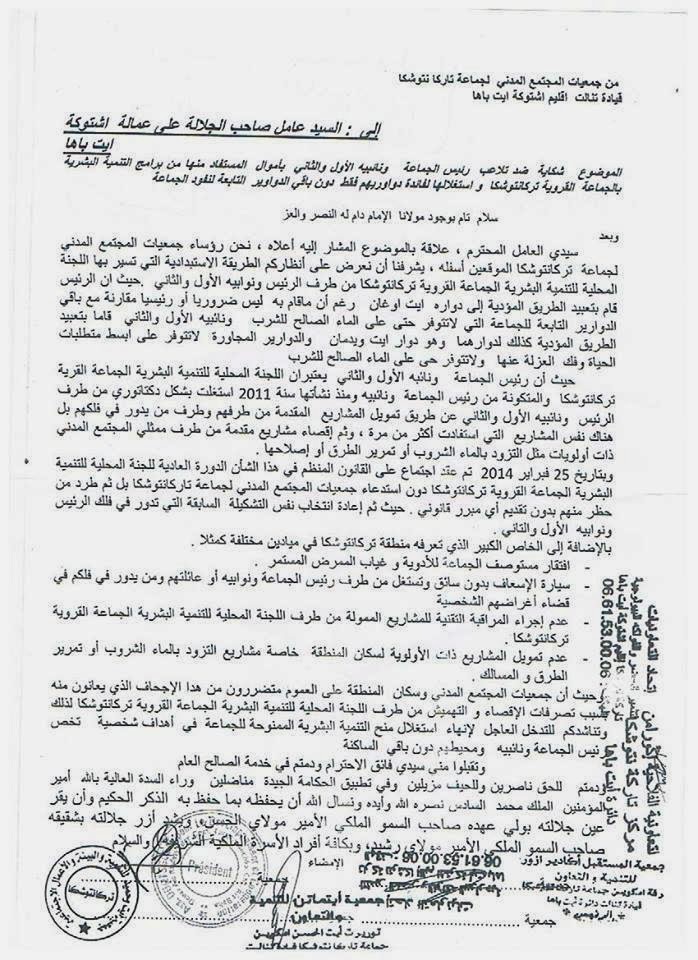 من جمعيات المجتمع المدني لجماعة تاركا نتوشكا
قيادة تنالت اقليم اشتوكة ايت باها
إلى : السيد عامل صاحب الجلالة على عمالة اشتوكة
ايت باها
الموضوع شكاية ضد تلاعب رئيس الجماعة ونائبيه الأول والثاني بأموال المستفاد منها من برامج التنمية البشرية
بالجماعة القروية تركانتوشكا و استغلالها لفائدة دواوريهم فقط دون باقي الدواوير التابعة لنفود الجماعة
سلام تام بوجود مولانا الإمام دام له النصر والعز
وبعد
سيدي العامل المحترم ، علاقة بالموضوع المشار إليه أعلاه ، نحن رؤساء جمعيات المجتمع المدني
لجماعة تركانتوشكا الموقعين أسفله ، يشرفنا أن نعرض على أنظاركم الطريقة الاستبدادية التي تسير بها اللجنة
المحلية للتنمية البشرية الجماعة القروية تركانتوشكا من طرف الرئيس ونوابيه الأول والثاني .حيث ان الرئيس
قام بتعبيد الطريق المؤدية إلى دواره ايت اوغان رغم أن ماقام به ليس ضروريا أو رئيسيا مقارنة مع باقي
الدواوير التابعة للجماعة التي لاتتوفر حتى على الماء الصالح للشرب ونائبيه الأول والثاني قاما بتعبيد
الطريق المؤدية كذلك لدوارهما وهو دوار ايت ويدمان والدواوير المجاورة لاتتوفر على ابسط متطلبات
الحياة وفك العزلة عنها ولاتتوفر حى على الماء الصالح للشرب
حيث أن رئيس الجماعة ونائبه الأول والثاني يعتبران اللجنة المحلية للتنمية البشرية الجماعة القرية
تركانتوشكا والمتكونة من رئيس الجماعة ونائبيه ومنذ نشأتها سنة 2011 استغلت بشكل دكتاتوري من طرف
الرئيس ونوابيه الأول والثاني عن طريق تمويل المشاريع المقدمة من طرفهم وطرف من يدور في فلكهم بل
هناك نفس المشاريع التي استفادت أكثر من مرة ، وتم إقصاء مشاريع مقدمة من طرف ممثلي المجتمع المدني
ذات أولويات مثل التزود بالماء الشروب أو تمرير الطرق أو إصلاحها .
وبتاريخ 25 فبراير 2014 تم عقد اجتماع على القانون المنظم في هذا الشأن الدورة العادية للجنة المحلية للتنمية
البشرية الجماعة القروية تركانتوشكا دون استدعاء جمعيات المجتمع المدني لجماعة تاركانتوشكا بل تم طرد من
حظر منهم بدون تقديم أي مبرر قانوني . حيث تم إعادة انتخاب نفس التشكيلة السابقة التي تدور في فلك الرئيس
ونوابيه الأول والثاني .
بالإضافة إلى الخاص الكبير الذي تعرفه منطقة تركانتوشكا في ميادين مختلفة كمثلا .
- افتقار مستوصف الجماعة للأدوية و غياب الممرض المستمر .
- سيارة الإسعاف بدون سائق وتستغل من طرف رئيس الجماعة ونوابيه أو عائلتهم ومن يدور في فلكم في
قضاء أغراضهم الشخصية
- عدم إجراء المراقبة التقنية للمشاريع الممولة من طرف اللجنة المحلية للتنمية البشرية الجماعة القروية
تركانتوشكا .
- عدم تمويل المشاريع ذات الأولوية لسكان المنطقة خاصة مشاريع التزود بالماء الشروب أو تمرير
الطرق و المسالك .
وحيث أن جمعيات المجتمع المدني وسكان المنطقة على العموم متضررون من هذا الإجحاف الذي يعانون منه
بسبب تصرفات الإقصاء و التهميش من طرف اللجنة المحلية للتنمية البشرية الجماعة القروية تركانتوشكا لذلك
وتناشدكم للتدخل العاجل لإنهاء استغلال منح التنمية البشرية الممنوحة للجماعة في أهداف شخصية تخص
رئيس الجماعة ونانبيه ومحيطهم دون باقي الساكنة
وتقبلوا مني سيدي فائق الاحترام ودمتم في خدمة الصالح العام
ودمتم للحق ناصرين وللحيف مزيلين وفي تطبيق الحكامة الجيدة مناضلين وراء السدة العالية بالله أمير
المؤمنين الملك محمد السادس نصره الله وأيده ونسال الله أن يحفظه بما حفظ به الذكر الحكيم وأن يقر
عين جلالته بولي عهده صاحب السمو الملكي الأمير مولاي الحسن ويشد أزر جلالته بشقيقه
صاحب السمو الملكي الأمير مولاي رشيد، وبكافة أفراد الأسرة الملكية الشريفة والسلام
الإمضاء
جمعية
President
تركانتوشكا
جمعية أيتماتن للتنمية
والتعاون
توريرت أيت الحسن امكوين
جماعة تاركا نتوشكا قيادة تنالت
جمعية
جمعية المستقبل أكادير ازور
للتنمية و التعاون
قيادة تنالت دائرة ايت باها
06.61.53.00.06
إتحاد التعاونيات
مركز تاركة نتوشكا
دائرة ايت باها
06.61.53.00.06